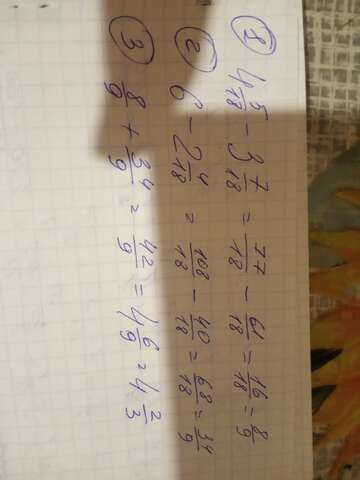 ① 4 5/18 - 3 7/18 = 77/18 - 61/18 = 16/18 = 8/9
② 6 - 2 4/18 = 108/18 - 40/18 = 68/18 = 34/9
③ 8/9 + 34/9 = 42/9 = 4 6/9 = 4 2/3